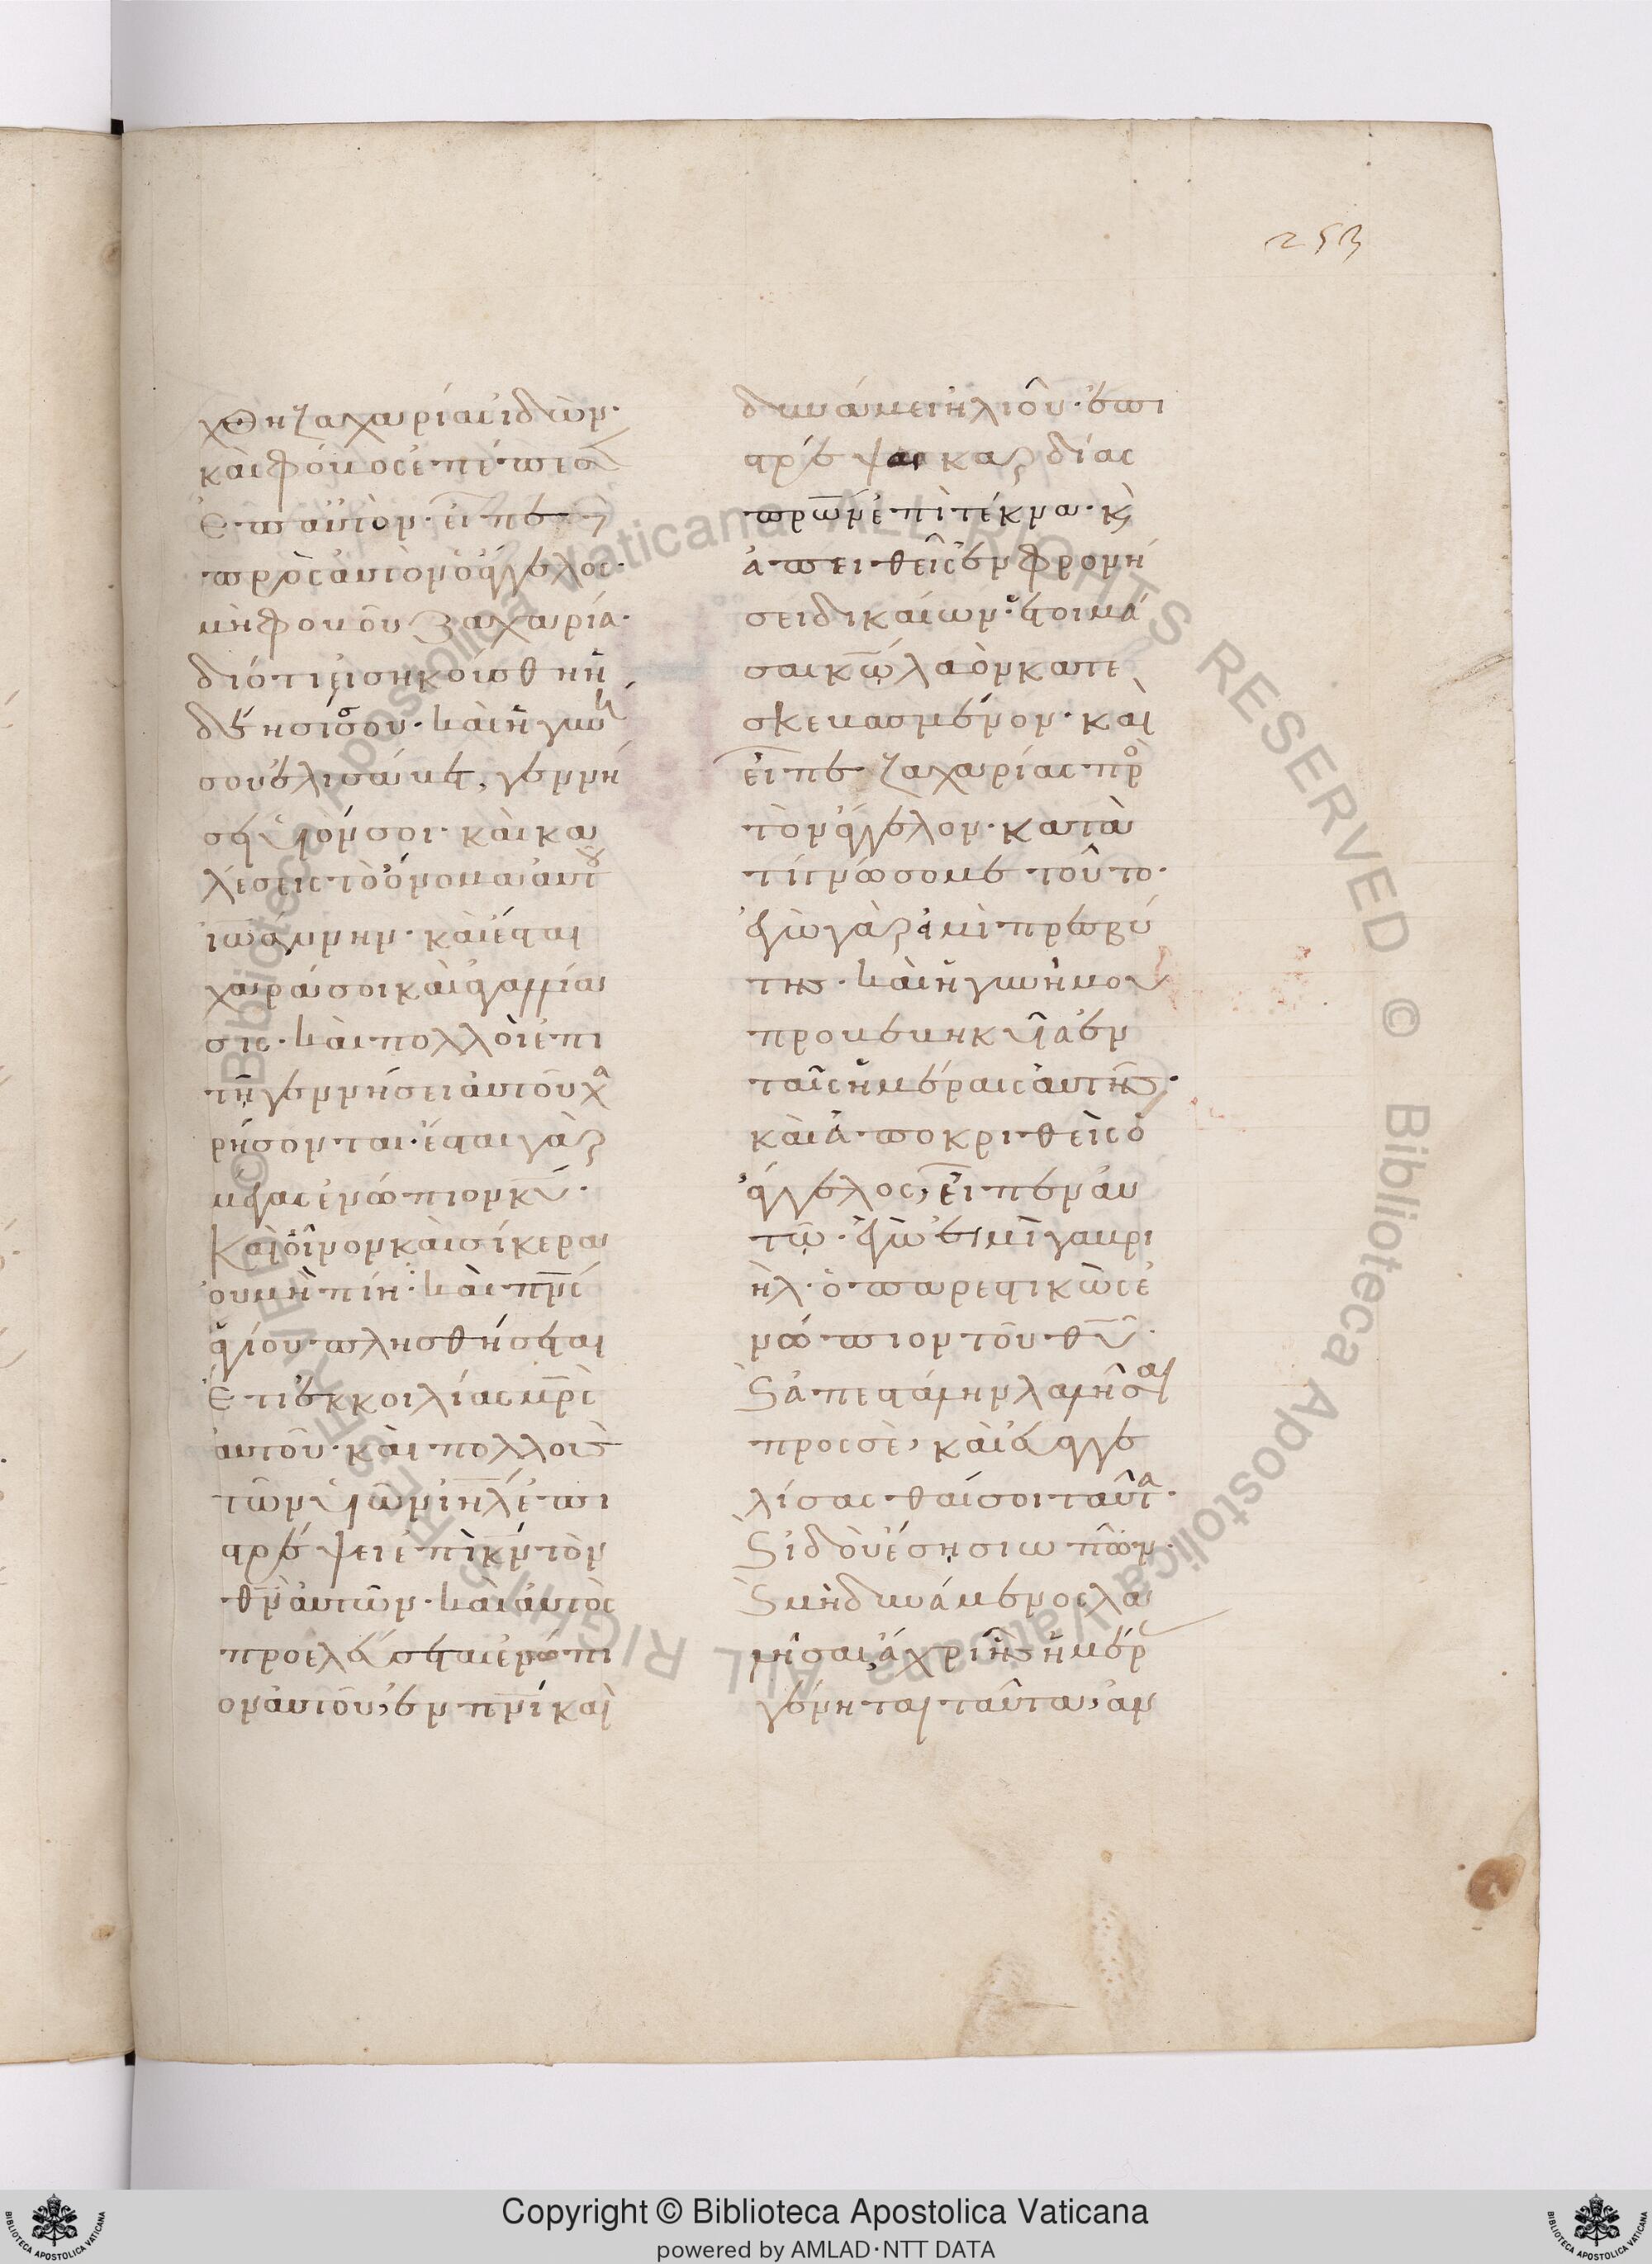 253
χθη ζαχαρίας ἰδὼν·
καὶ φόβος ἐπέπεσεν
ἐπ αὐτὸν· εἶπε δὲ
πρὸς αὐτὸν ὁ ἄγγελος·
μὴ φοβοῦ ζαχαρία·
διότι εἰσηκούσθη ἡ
δέησίς σου· καὶ ἡ γυνή
σου ἐλισάβετ, γεννή
σει υἱόν σοι· καὶ κα
λέσεις τὸ ὄνομα αὐτοῦ
ἰωάννην· καὶ ἔσται
χαρά σοι καὶ ἀγαλλία
σις· καὶ πολλοὶ ἐπὶ
τῇ γεννήσει αὐτοῦ χα
ρήσονται· ἔσται γὰρ
μέγας ἐνώπιον κ̅υ̅·
Καὶ οἶνον καὶ σίκερα
οὐ μὴ πίῃ· καὶ π̅ν̅ς̅
ἁγίου πλησθήσεται
ἔτι ἐκ κοιλίας μ̅ρ̅ς̅
αὐτοῦ· καὶ πολλοὺς
τῶν υἱῶν ι̅η̅λ̅ ἐπι
στρέψει ἐπὶ κ̅ν̅ τὸν
θ̅ν̅ αὐτῶν· καὶ αὐτὸς
προελεύσεται ἐνώπι
ον αὐτοῦ, ἐν π̅ν̅ι̅ καὶ
δυνάμει ἠλιοῦ· ἐπι
στρέψαι καρδίας
π̅ρ̅ω̅ν̅ ἐπὶ τέκνα· κὲ
ἀπειθεῖς ἐν φρονή
σει δικαίων· ἑτοιμά
σαι κ̅ω̅ λαὸν κατε
σκευασμένον· καὶ
εἶπε ζαχαρίας πρὸς
τὸν ἄγγελον· κατὰ
τί γνώσομαι τοῦτο·
ἐγὼ γάρ εἰμι πρεσβύ
της· καὶ ἡ γυνή μου
προβεβηκυῖα ἐν
ταῖς ἡμέραις αὐτῆς·
καὶ ἀποκριθεὶς ὁ
ἄγγελος, εἶπεν αὐ
τῷ· ἐγώ εἰμι γαβρι
ὴλ· ὁ παρεστικὼς ἐ
νώπιον τοῦ θ̅υ̅·
Ϗ ἀπεστάλην λαλῆσαι
πρὸς σὲ, καὶ εὐαγγε
λίσασθαί σοι ταῦτα·
Ϗ ἰδοὺ ἔσῃ σιωπῶν·
Ϗ μὴ δυνάμενος λα
λῆσαι, ἄχρι ἧς ἡμέρας
γένηται ταῦτα, ἀν
Copyright © Biblioteca Apostolica Vaticana
powered by AMLAD·NTT DATA
© Biblioteca Apostolica Vaticana ALL RIGHTS RESERVED
© Biblioteca Apostolica Vaticana ALL RIGHTS RESERVED
BIBLIOTECA APOSTOLICA VATICANA
BIBLIOTECA APOSTOLICA VATICANA